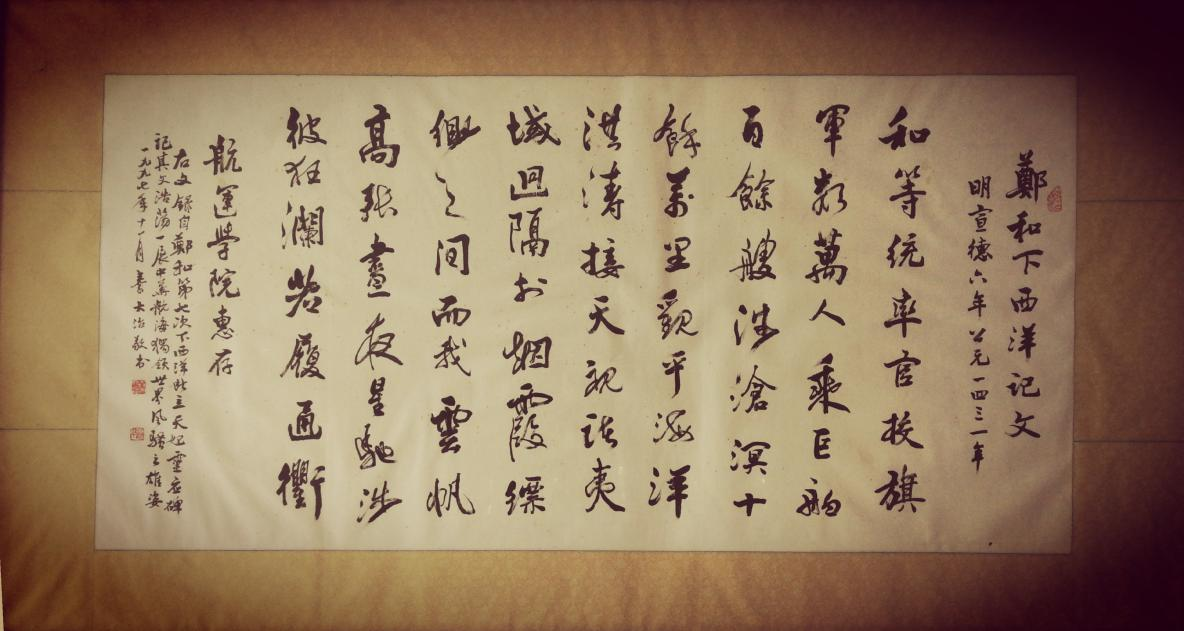 鄭和下西洋记文
明宣德六年公元一四三一年
和等统率官校旗
軍数萬人乘巨舶
百餘艘涉滄溟十
餘万里觀平海洋
洪涛接天视诸夷
域迥隔於烟霞缥
缈之间而我雲帆
高张晝夜星馳涉
彼狂瀾若履通衢
航運學院惠存
右文録自鄭和第七次下西洋所立天妃靈应碑
记其文浩荡一展中華航海獨领世界风骚之雄姿
一九九七年十一月 大治敬书